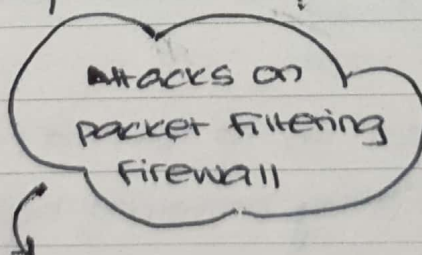 Attacks on
packet Filtering
Firewall